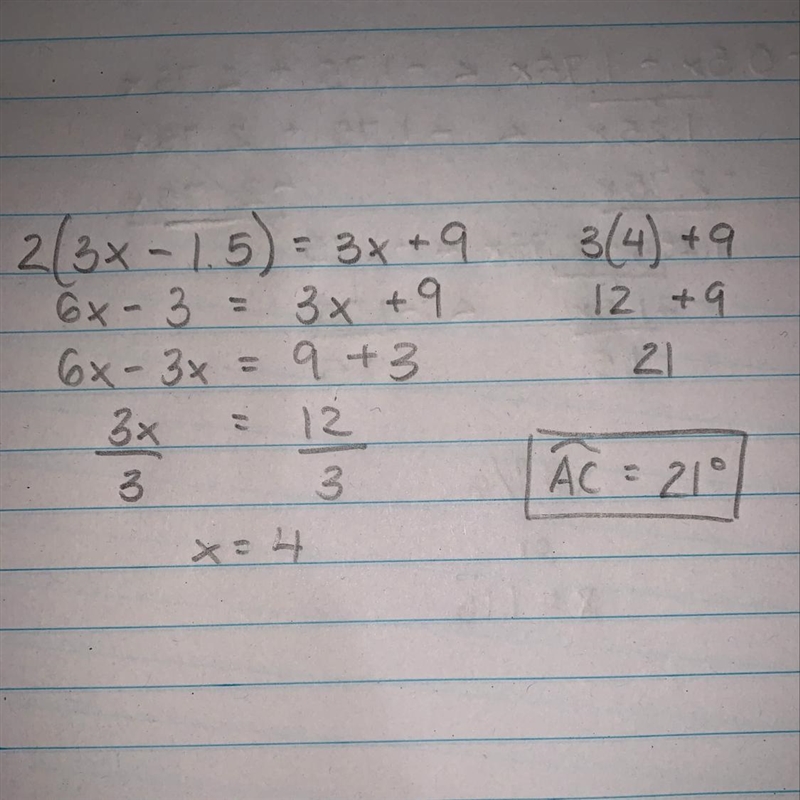 2(3x - 1.5) = 3x + 9
6x - 3 = 3x + 9
6x - 3x = 9 + 3
3x/3 = 12/3
x = 4
3(4) + 9
12 + 9
21
⌒AC = 21°